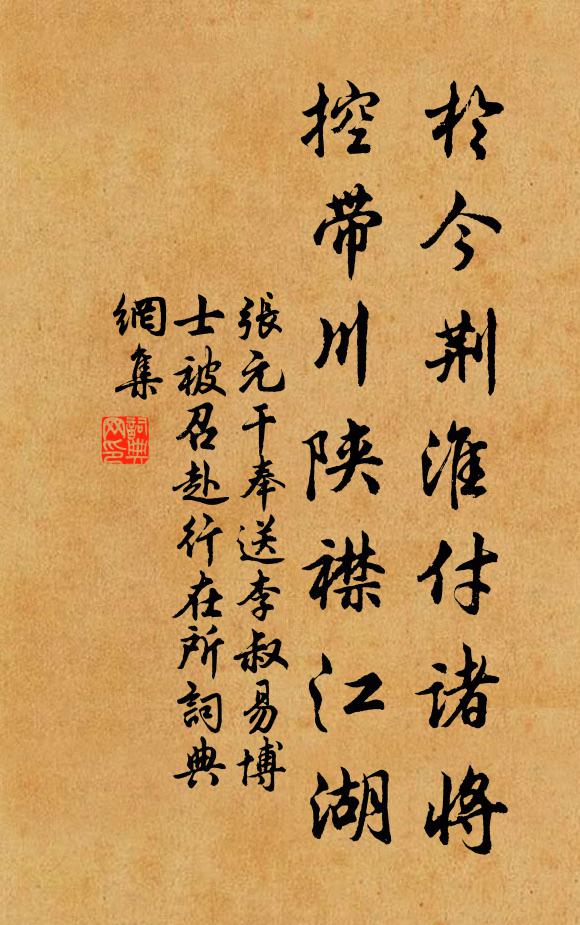 於今荆淮付諸將
控带川陕襟江湖
張元干奉送李叔易博
士被召赴行在所詞典
網集
詞典網印